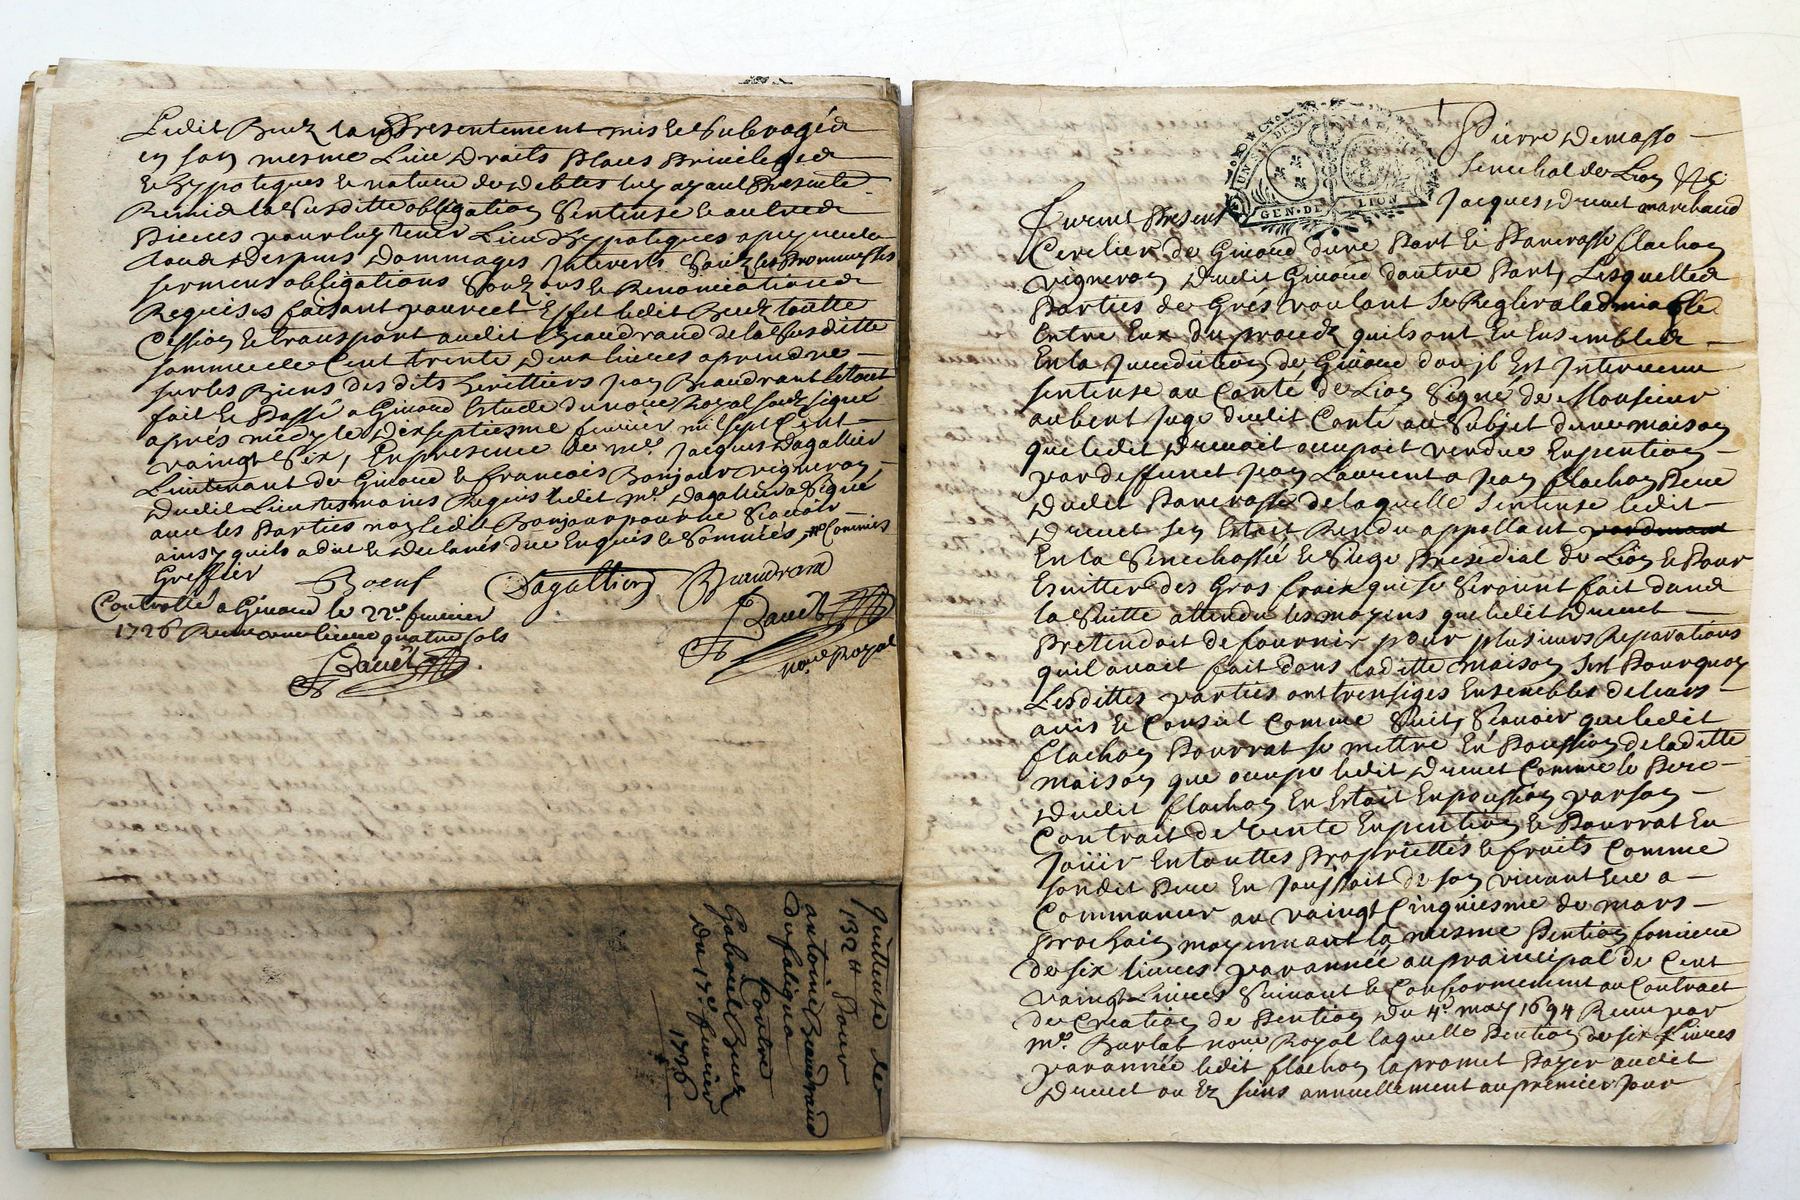 Ledit Buez la presentement mis & Subrogé
en son mesme Lieu Droits Places Privileges
& hypoteques & nature de debtes luy ayant Presente
Remis la Susditte obligation Sentense & autres
Pieces pour luy tenir Lieu d'hypoteques a peyne de
tous despans Dommages Interets Soubz les Prommesses
serment obligations Soubmis & Renonciations
Requises faisant pour cet Effet ledit Buez toutte
Cession & transport audit Beaudrand de la Susditte
somme de Cent trente deux Livres a prendre
sur les Biens des dits heritiers Jean Beaudrant
fait & Passé a Givord Estude du no.re Royal soubsigné
aprés midy le Dixseptiesme fevrier mil sept Cent
vaingt Six, En presence de m.e Jacques Dagallier
Lieutenant de Givord & francois Bonjour vigneron
dudit Lieu tesmoins Requis ledit m.e Dagallier a Signé
avec les Parties non ledit Bonjour pour ne Scavoir
ainsy quils a dit & declarés de ce Enquis & Sommés, Commis
Greffier Boeuf Dagallier Beaudrand
Controllé a Givord le 22.e fevrier
1726 Receu une livre quatre sols
no.re Royal
quittense de
132 ₶ Pour
antoine Beaudrand
Contre
Gabriel Buez
Du 17.e fevrier
1726
Pierre Demasso
Senechal de Lion &c
GEN. DE LION
furent Present Jacques Drevet marchand
Cerclier de Givord dune Part & Pancrasse flachon
vigneron dudit Givord dautre Part, Lesquelles
Parties de Gres voulant se Regler a ladmiable
Entre Eux du proces quils ont Eu Ensembles
En la Juridiction de Givord dou il Est Intervenu
sentense au Conté de Lion Signé de Monsieur
aubert Juge dudit Conté au Subjet dune maison
que ledit Drevet occupoit vendue En pention
par deffunct Jean Laurent a Jean flachon Pere
dudit Pancrasse de laquelle Sentense ledit
Drevet sen Estoit Rendu appellant
En la Senechossée & Siege Presidial de Lion & Pour
Esvitter des Gros fraix qui se Seroient fait dans
la Suitte attendu les moyens que ledit Drevet
Pretendoit de fournir pour plusieurs Reparations
quil avoit fait dans laditte maison Sest Pourquoy
Lesdittes parties ont trensiges Ensembles de leurs
avis & Conseil Comme Suit, Scavoir que ledit
flachon Pourrat se mettre En Possession de laditte
maison que occupe ledit Drevet Comme le Pere
dudit flachon En Estoit En possession par son
Contrait de vente En pention & Pourrat En
Joüir En touttes Propriettés & fruits Comme
sondit Pere En Joussoit de son vivant & ce a
Commancer au vaingt Cinquiesme de mars
Prochain moyennant la mesme Pention fonciere
de six livres par année au praincipal de Cent
vaingt Livres Suivant & Conformement au Contract
de Creation de Pention du 4.e may 1694 Receu par
m.e Burlat no.re Royal laquelle Pention de six Livres
par année ledit flachon la promet Payer audit
Drevet ou Ez siens annuellement au premier jour